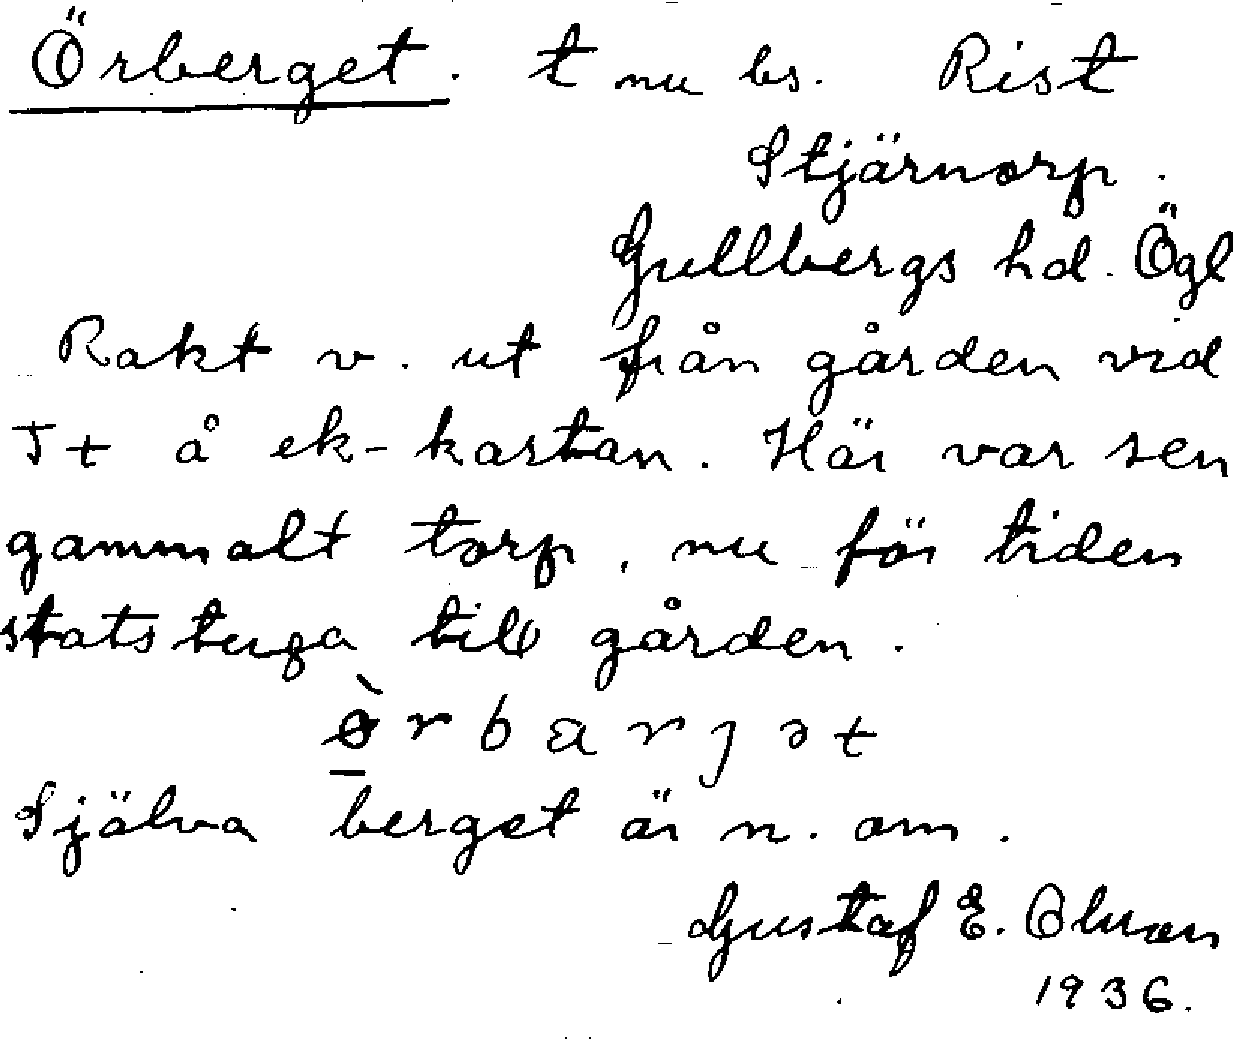 Örberget. t nu bs. Rist
Stjärnorp.
Gullbergs hd. Ögl
Rakt v. ut från gården vid
Jt å ek-kartan. Här var sen
gammalt torp, nu för tiden
statstuga till gården.
ø̀rbarjət
Själva berget är n. om.
Gustaf E.
1936.